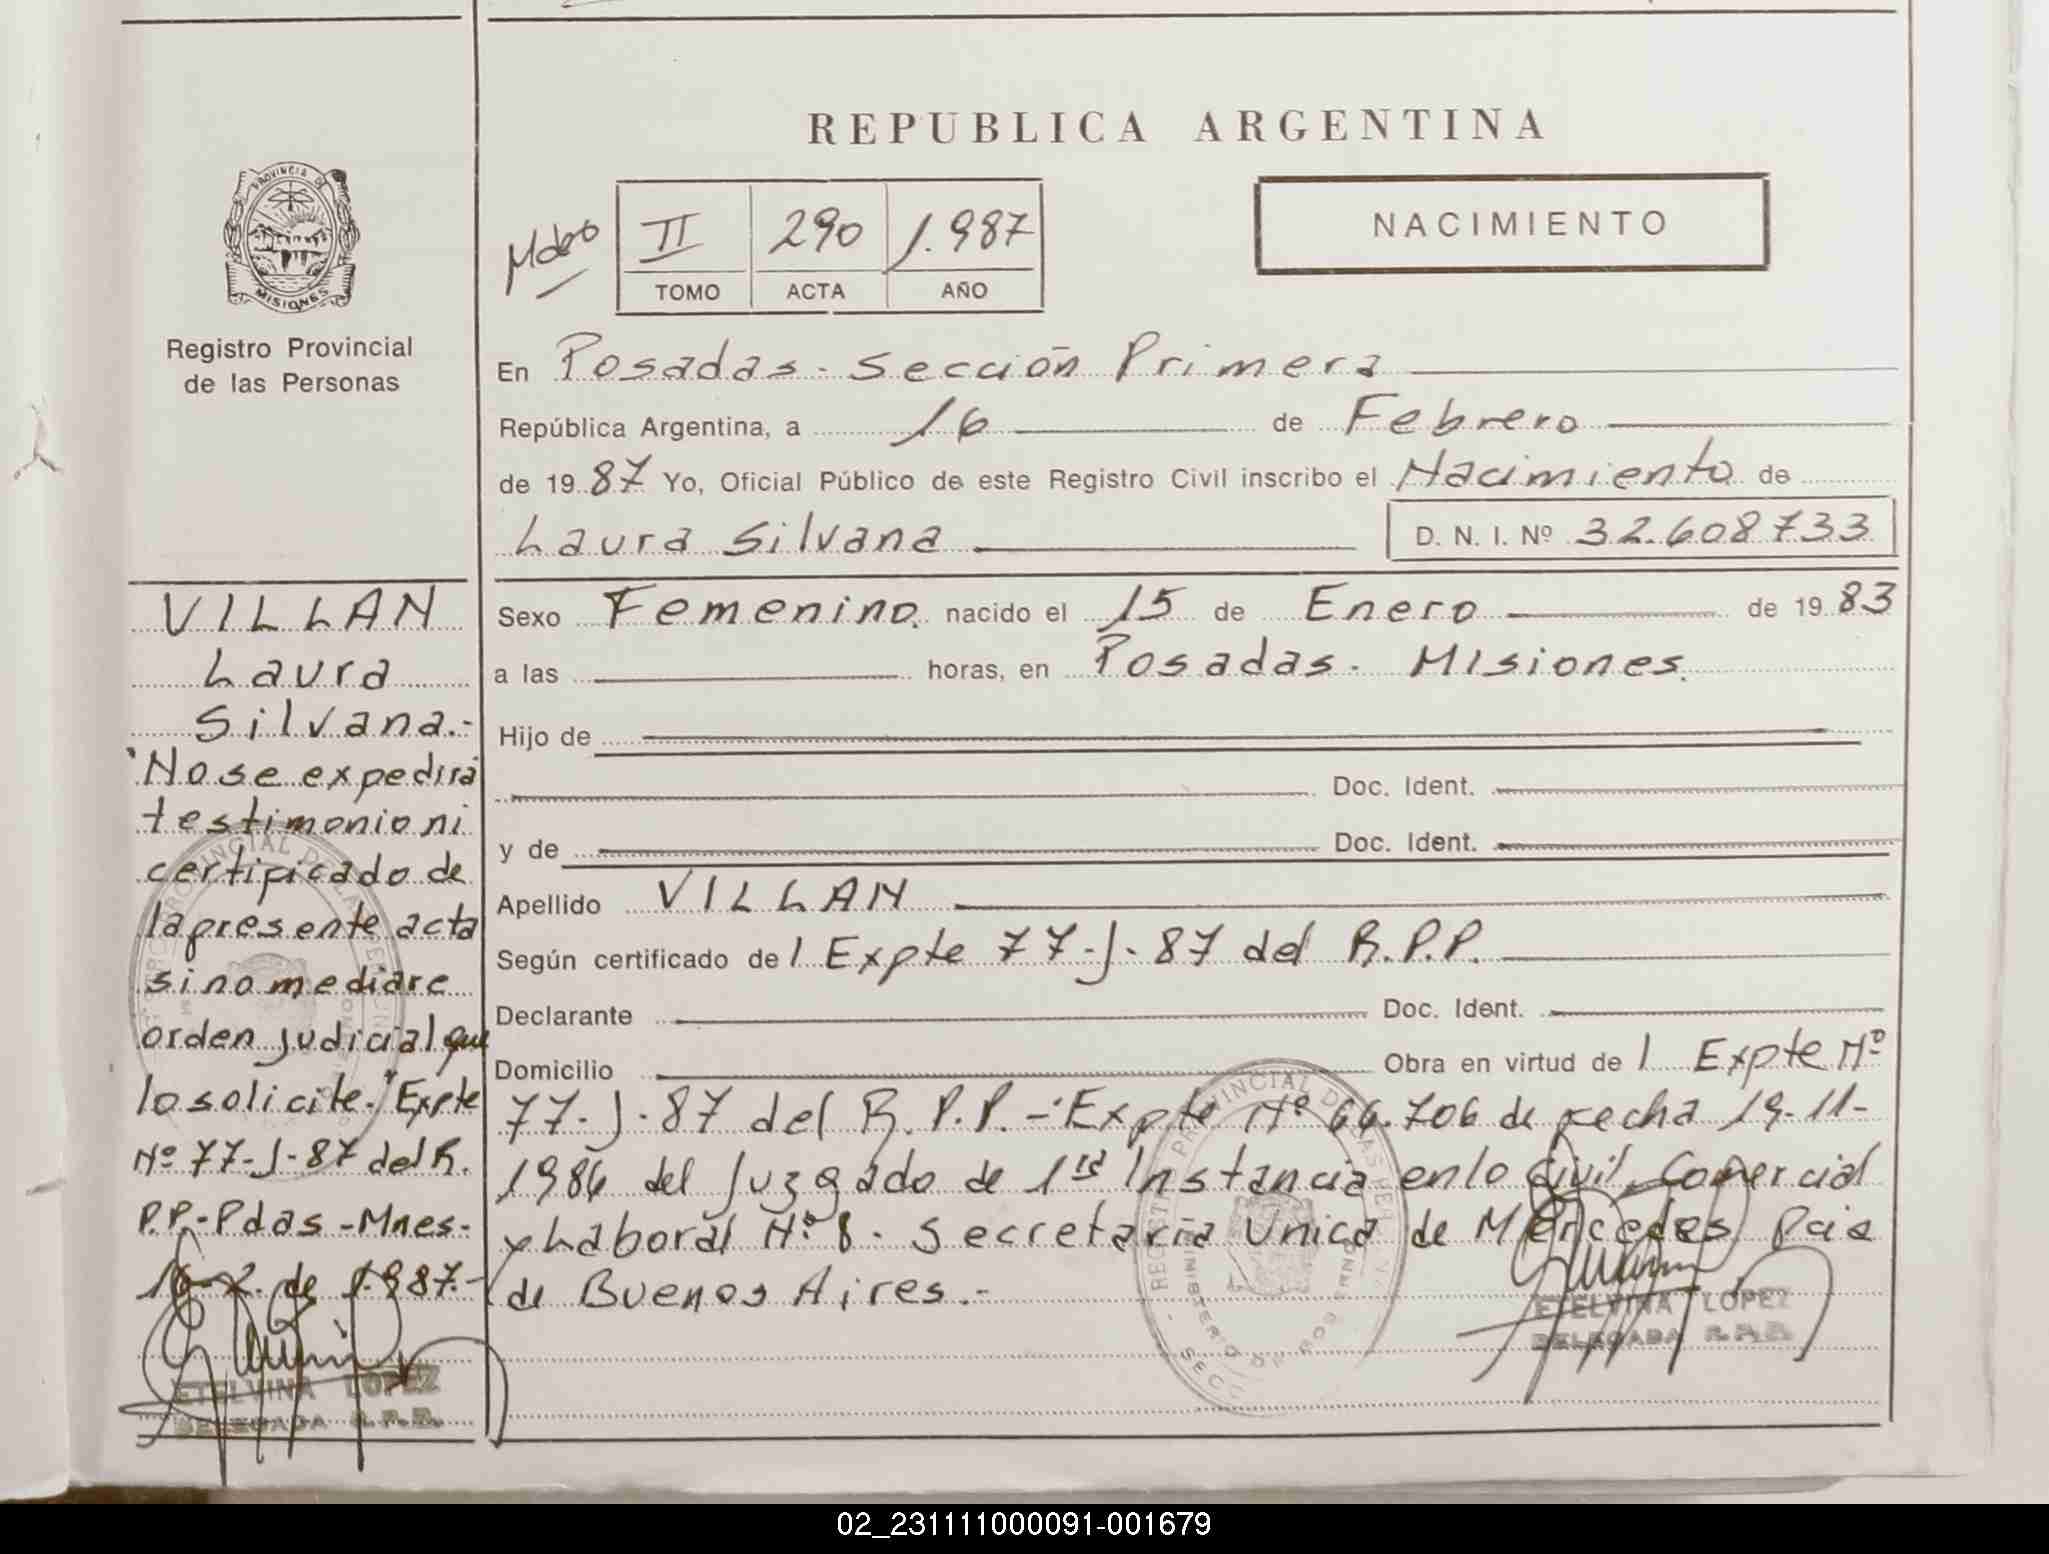 REPUBLICA ARGENTINA
PROVINCIA DE
MISIONES
Registro Provincial
de las Personas
II 290 1.987
TOMO ACTA AÑO
NACIMIENTO
En Posadas - Sección Primera
República Argentina, a 16 de Febrero
de 1987 Yo, Oficial Público de este Registro Civil inscribo el Nacimiento de
Laura Silvana D. N. I. Nº 32.608733
Sexo Femenino. nacido el 15 de Enero de 1983
a las horas, en Posadas - Misiones.
Hijo de
Doc. Ident.
y de Doc. Ident.
Apellido VILLAN
Según certificado de l Expte 77-J-87 del R.P.P.
Declarante Doc. Ident.
Domicilio Obra en virtud de l Expte Nº
77-J-87 del R.P.P. - Expte Nº 66.706 de fecha 19-11-
1986 del Juzgado de 1ra Instancia en lo Civil, Comercial
y Laboral Nº 8 - Secretaría Unica de Mercedes Pcia
de Buenos Aires.-
ETELVINA LOPEZ
DELEGADA R.P.P.
VILLAN
Laura
Silvana.-
"No se expedirá
testimonio ni
certificado de
la presente acta
si no mediare
orden judicial que
lo solicite." Expte
Nº 77-J-87 del R.
P.P.-Pdas-Mnes-
16-2 de 1.987.-
ETELVINA LOPEZ
DELEGADA R.P.P.
02_231111000091-001679